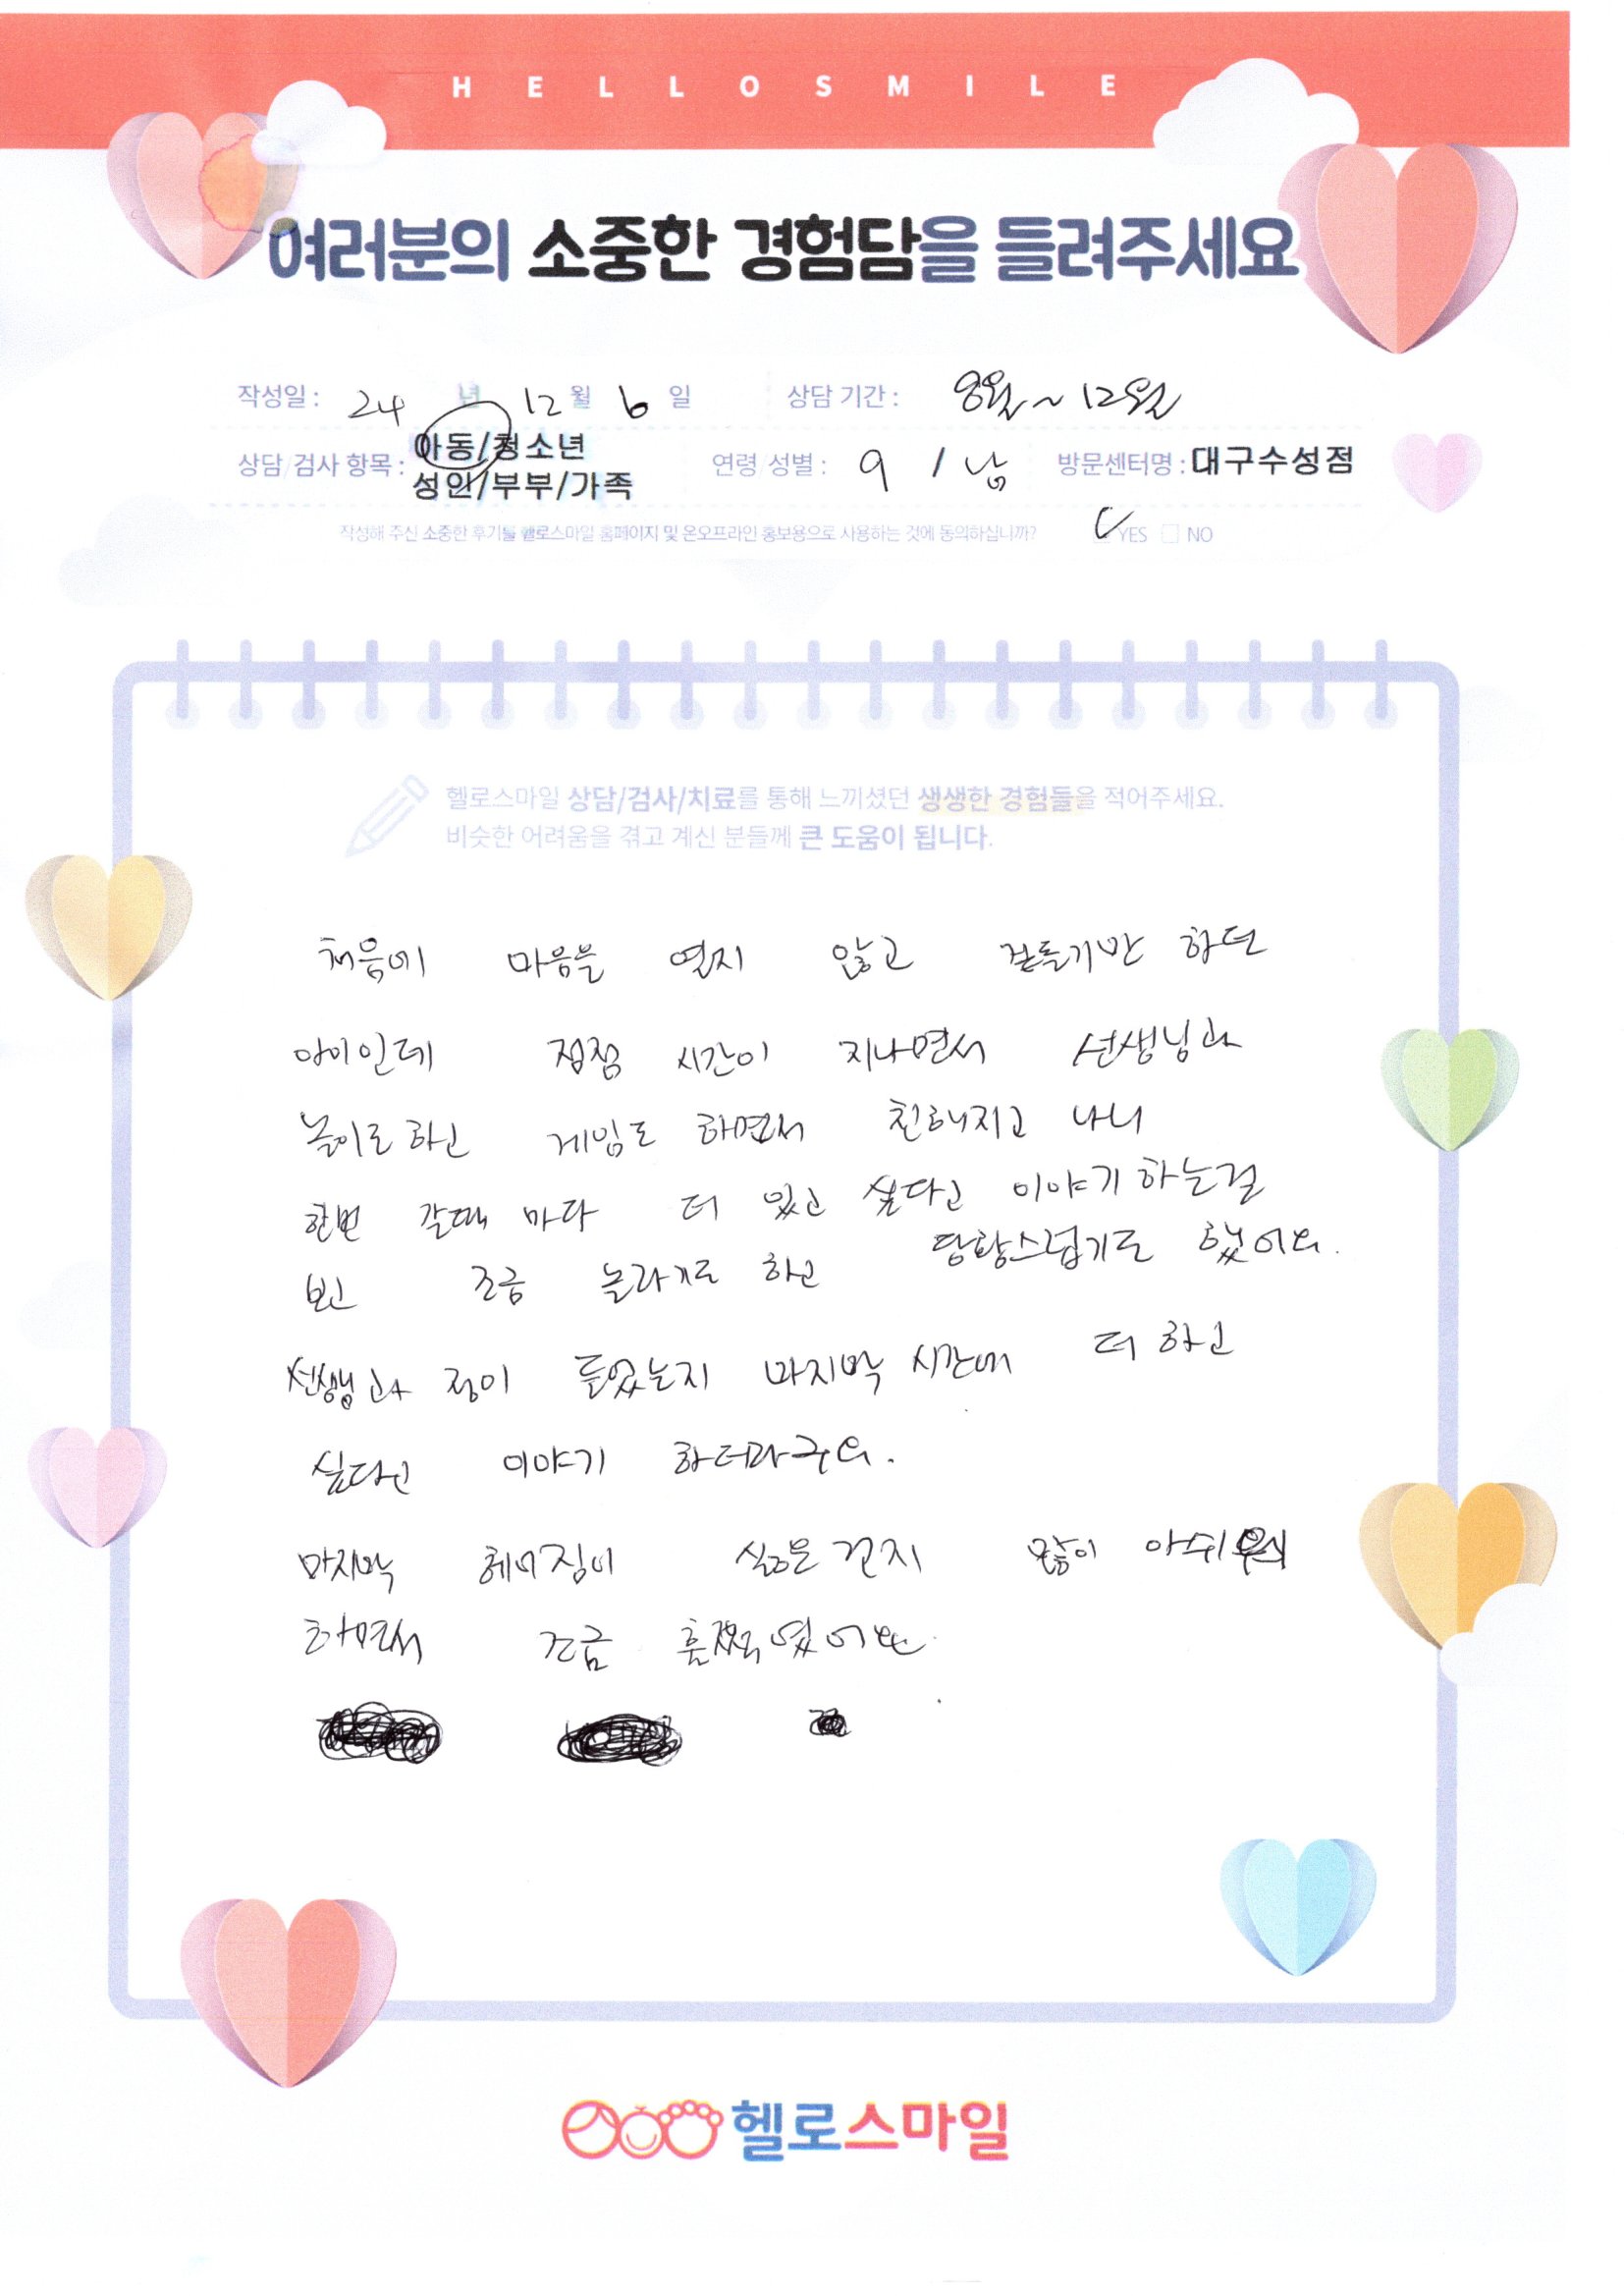 HELLOSMILE
여러분의 소중한 경험담을 들려주세요
작성일 : 24 년 12 월 6 일 상담 기간 : 8월~12월
상담/검사 항목 : 아동/청소년 연령/성별 : 9 / 남 방문센터명 : 대구수성점
성인/부부/가족
작성해 주신 소중한 후기를 헬로스마일 홈페이지 및 온오프라인 홍보용으로 사용하는 것에 동의하십니까? YES NO
헬로스마일 상담/검사/치료를 통해 느끼셨던 생생한 경험들을 적어주세요.
비슷한 어려움을 겪고 계신 분들께 큰 도움이 됩니다.
처음에 마음을 열지 않고 겉돌기만 하던
아이인데 점점 시간이 지나면서 선생님과
놀이도 하고 게임도 하면서 친해지고 나니
한번 갈때 마다 더 있고 싶다고 이야기 하는걸
보고 조금 놀라기도 하고 당황스럽기도 했어요.
선생님과 정이 들었는지 마지막 시간에 더 하고
싶다고 이야기 하더라구요.
마지막 헤어짐이 싫은건지 많이
하면서 조금
헬로스마일